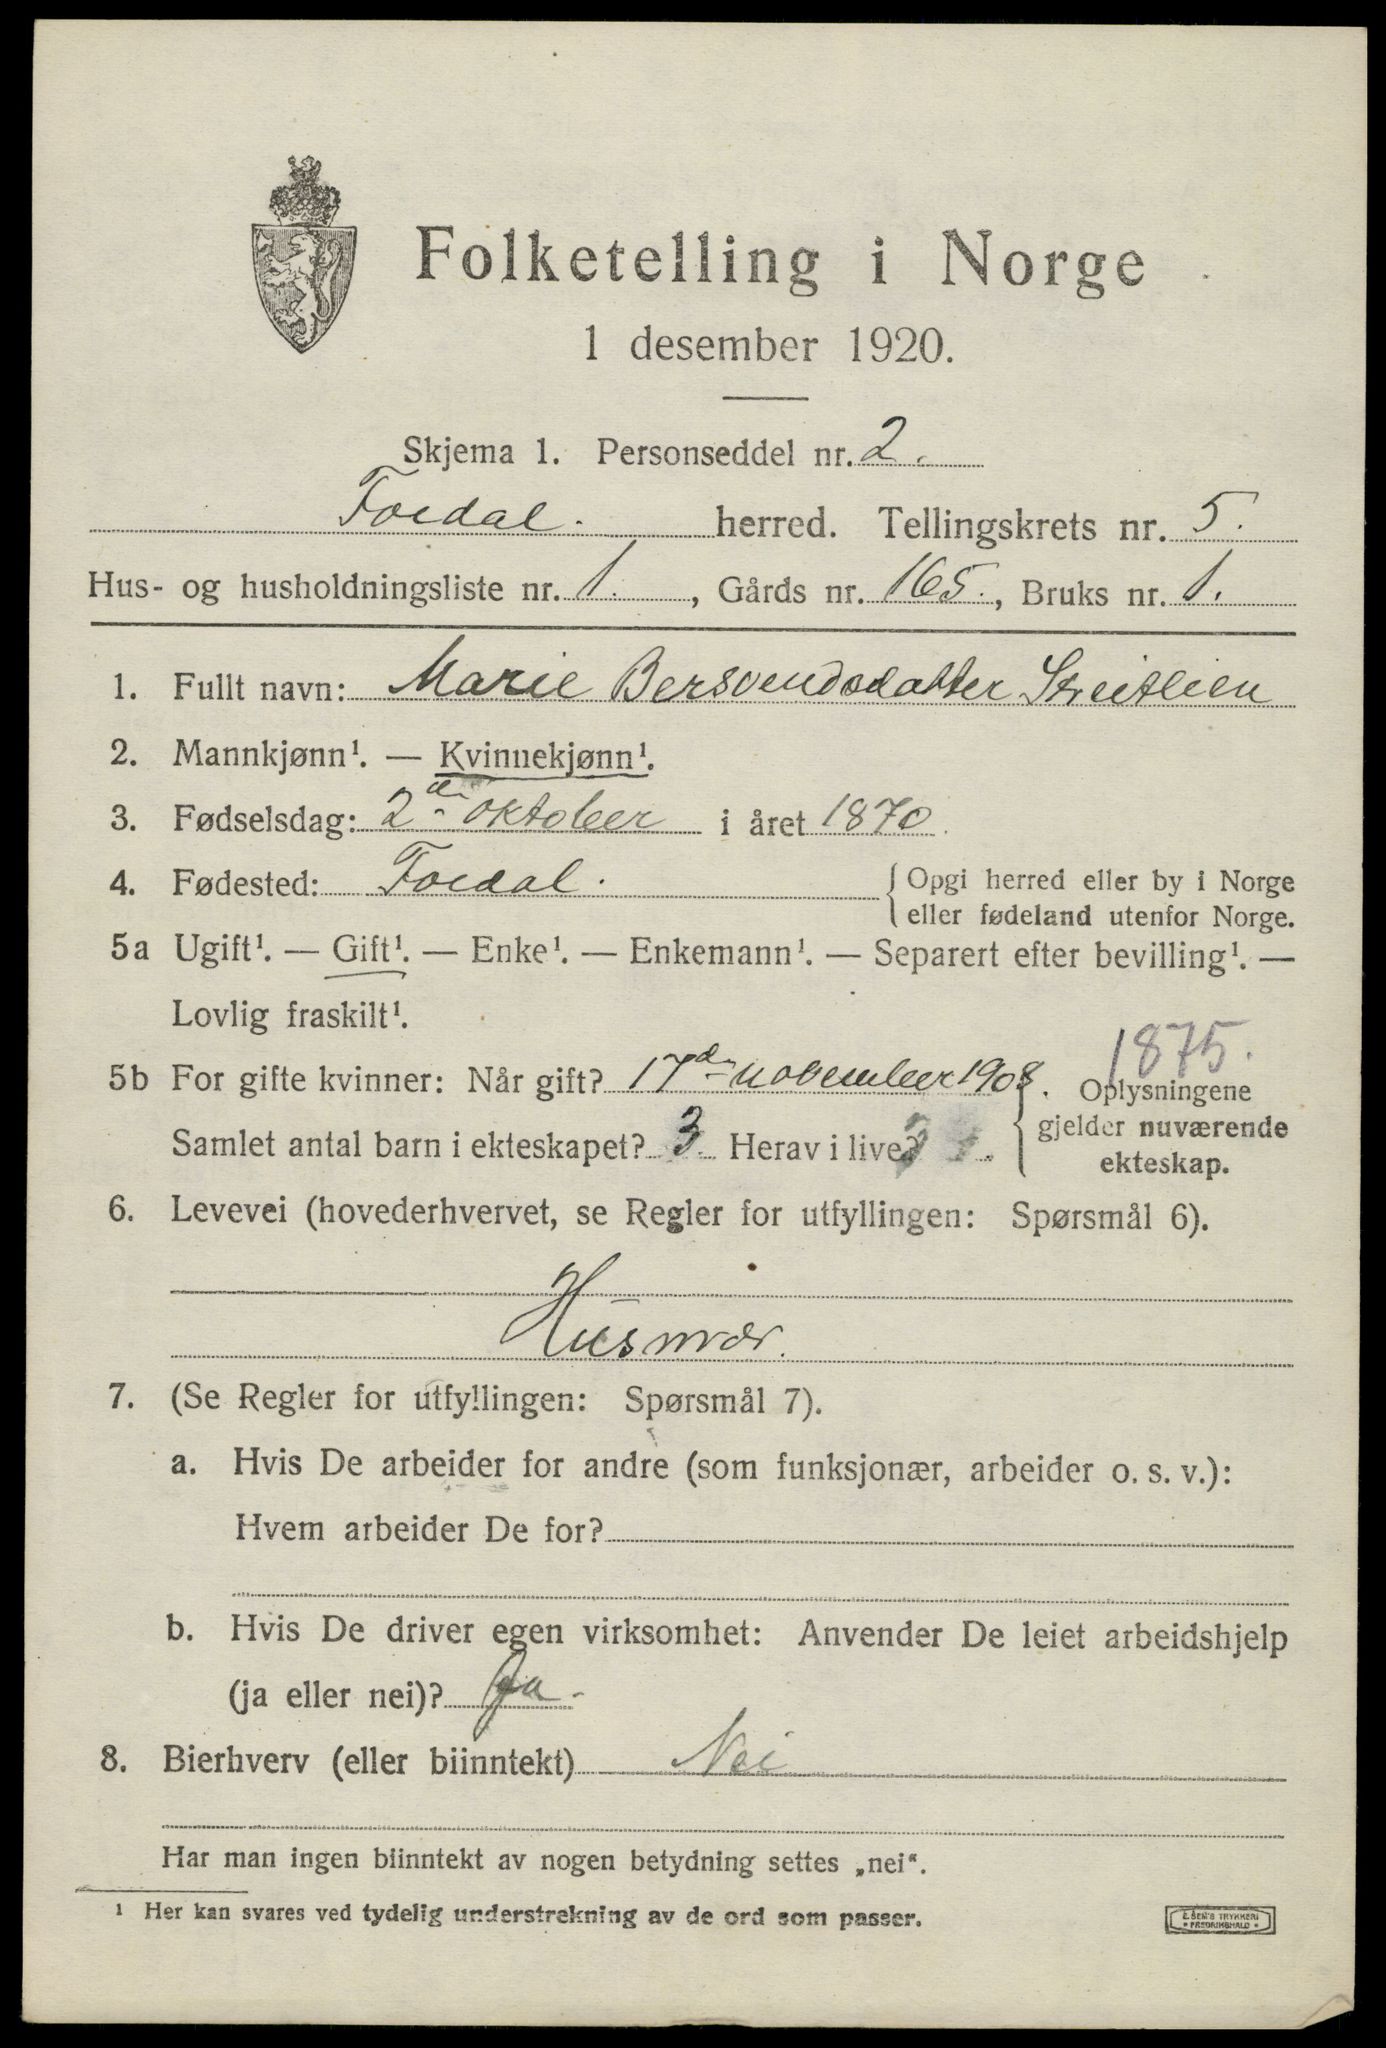 Folketelling i Norge
1 desember 1920.
Skjema 1. Personseddel nr. 2.
Foldal. herred. Tellingskrets nr. 5.
Hus- og husholdningsliste nr. 1., Gårds nr. 165., Bruks nr. 1.
1. Fullt navn: Marie Bersvendsdatter Streitlien
2. Mannkjønn¹. — Kvinnekjønn¹.
3. Fødselsdag: 2den oktober i året 1870.
4. Fødested: Foldal. { Opgi herred eller by i Norge
eller fødeland utenfor Norge.
5a Ugift¹. — Gift¹. — Enke¹. — Enkemann¹. — Separert efter bevilling¹. —
Lovlig fraskilt¹.
1875.
5b For gifte kvinner: Når gift? 17de november 1908. Oplysningene
gjelder nuværende
Samlet antal barn i ekteskapet? 3 Herav i live? 3.
ekteskap.
6. Levevei (hovederhvervet, se Regler for utfyllingen: Spørsmål 6).
Husmor.
7. (Se Regler for utfyllingen: Spørsmål 7).
a. Hvis De arbeider for andre (som funksjonær, arbeider o. s. v.):
Hvem arbeider De for?
b. Hvis De driver egen virksomhet: Anvender De leiet arbeidshjelp
(ja eller nei)? Ja.
8. Bierhverv (eller biinntekt) Nei
Har man ingen biinntekt av nogen betydning settes „nei“.
¹ Her kan svares ved tydelig understrekning av de ord som passer.
E. SEM'S TRYKKERI
• FREDRIKSHALD •